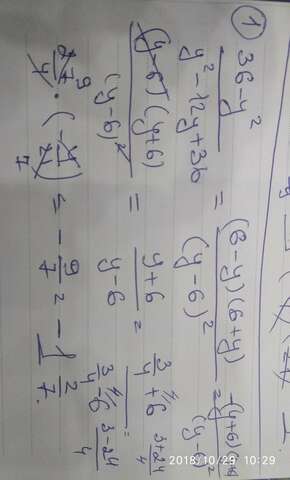 ① (36-y²)/(y²-12y+36) = ((6-y)(6+y))/(y-6)² = 
((y-6)(y+6))/(y-6)² = (y+6)/(y-6) = (3/4+6)/(3/4-6) = ((3+24)/4)/((3-24)/4)
27/4 · (-4/21) = -9/7 = -1 2/7.
2018/10/29 10:29